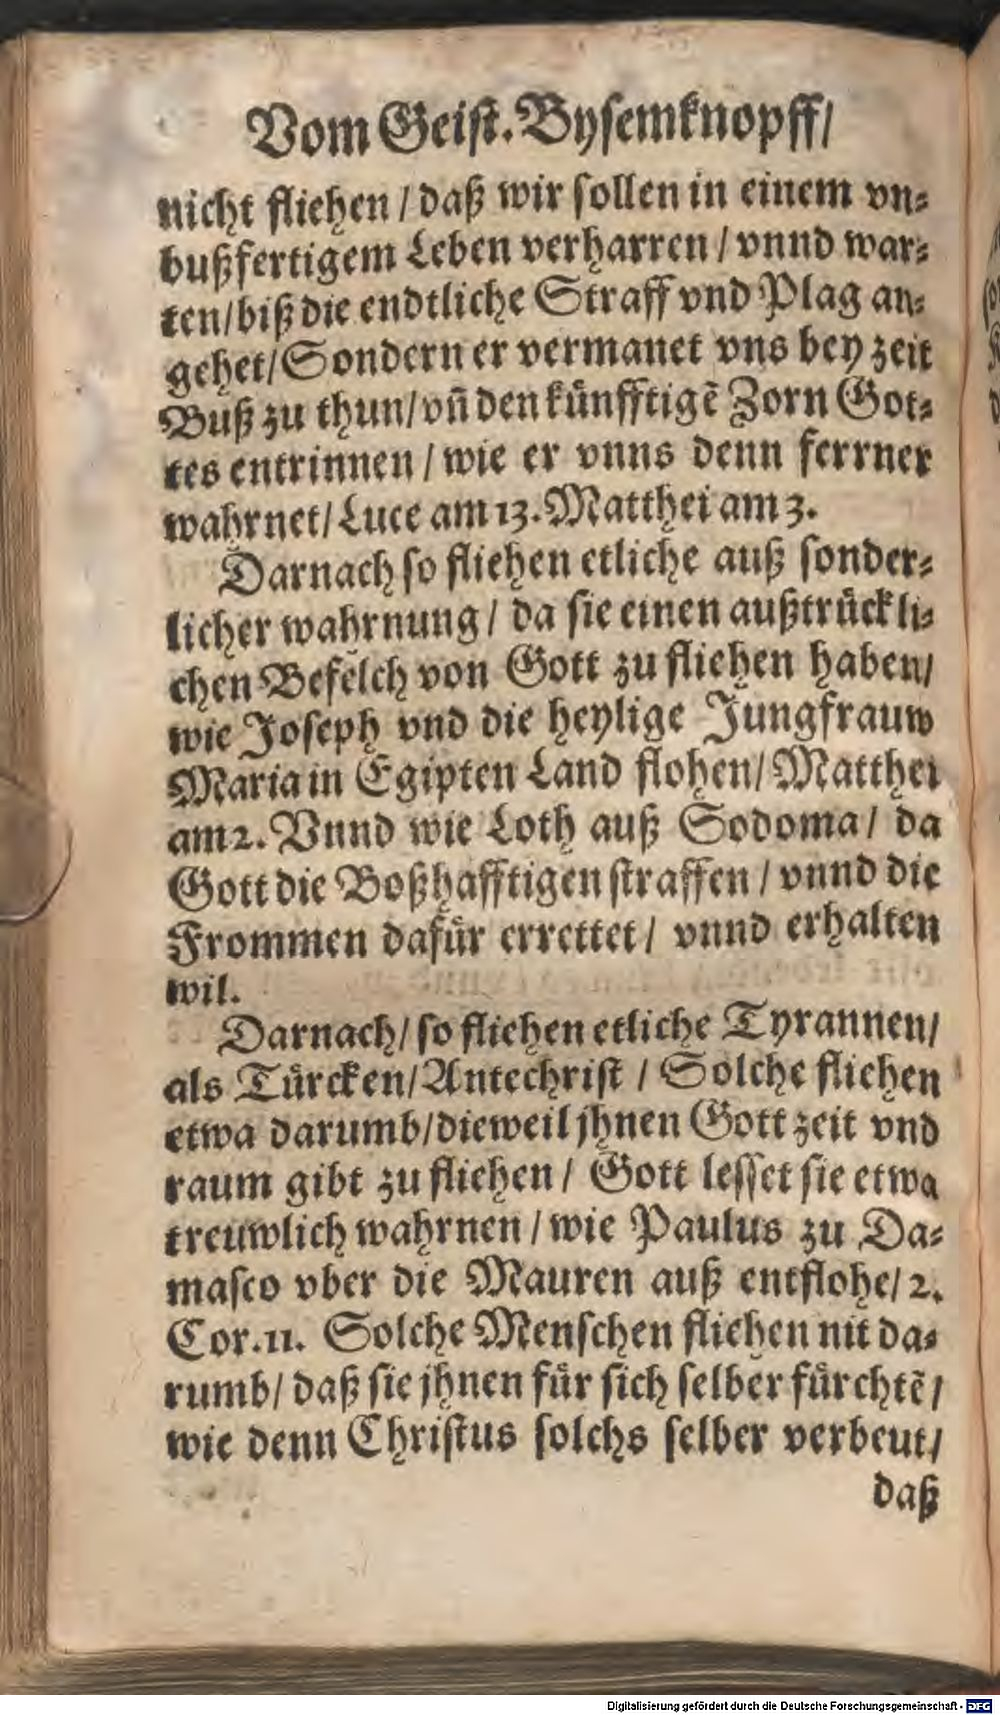 Vom Geist. Bysemknopff/
nicht fliehen / daß wir sollen in einem vn⸗
bußfertigem Leben verharren / vnnd war⸗
ten/biß die endtliche Straff vnd Plag an⸗
gehet/Sondern er vermanet vns bey zeit
Buß zu thun/vñ den kuͤnfftigẽ Zorn Got⸗
tes entrinnen / wie er vnns denn ferrner
wahrnet/ Luce am 13. Matthei am 3.
Darnach so fliehen etliche auß sonder⸗
licher wahrnung / da sie einen außtruͤckli⸗
chen Befelch von Gott zu fliehen haben/
wie Joseph vnd die heylige Jungfrauw
Maria in Egipten Land flohen/ Matthei
am 2. Vnnd wie Loth auß Sodoma / da
Gott die Boßhafftigen straffen / vnnd die
Frommen dafuͤr errettet / vnnd erhalten
wil.
Darnach/ so fliehen etliche Tyrannen/
als Tuͤrcken/Antechrist / Solche fliehen
etwa darumb/dieweil jhnen Gott zeit vnd
raum gibt zu fliehen / Gott lesset sie etwa
treuwlich wahrnen / wie Paulus zu Da⸗
masco vber die Mauren auß entflohe/ 2.
Cor. 11. Solche Menschen fliehen nit da⸗
rumb/ daß sie jhnen fuͤr sich selber fuͤrchtẽ/
wie denn Christus solchs selber verbeut/
daß
Digitalisierung gefördert durch die Deutsche Forschungsgemeinschaft - DFG